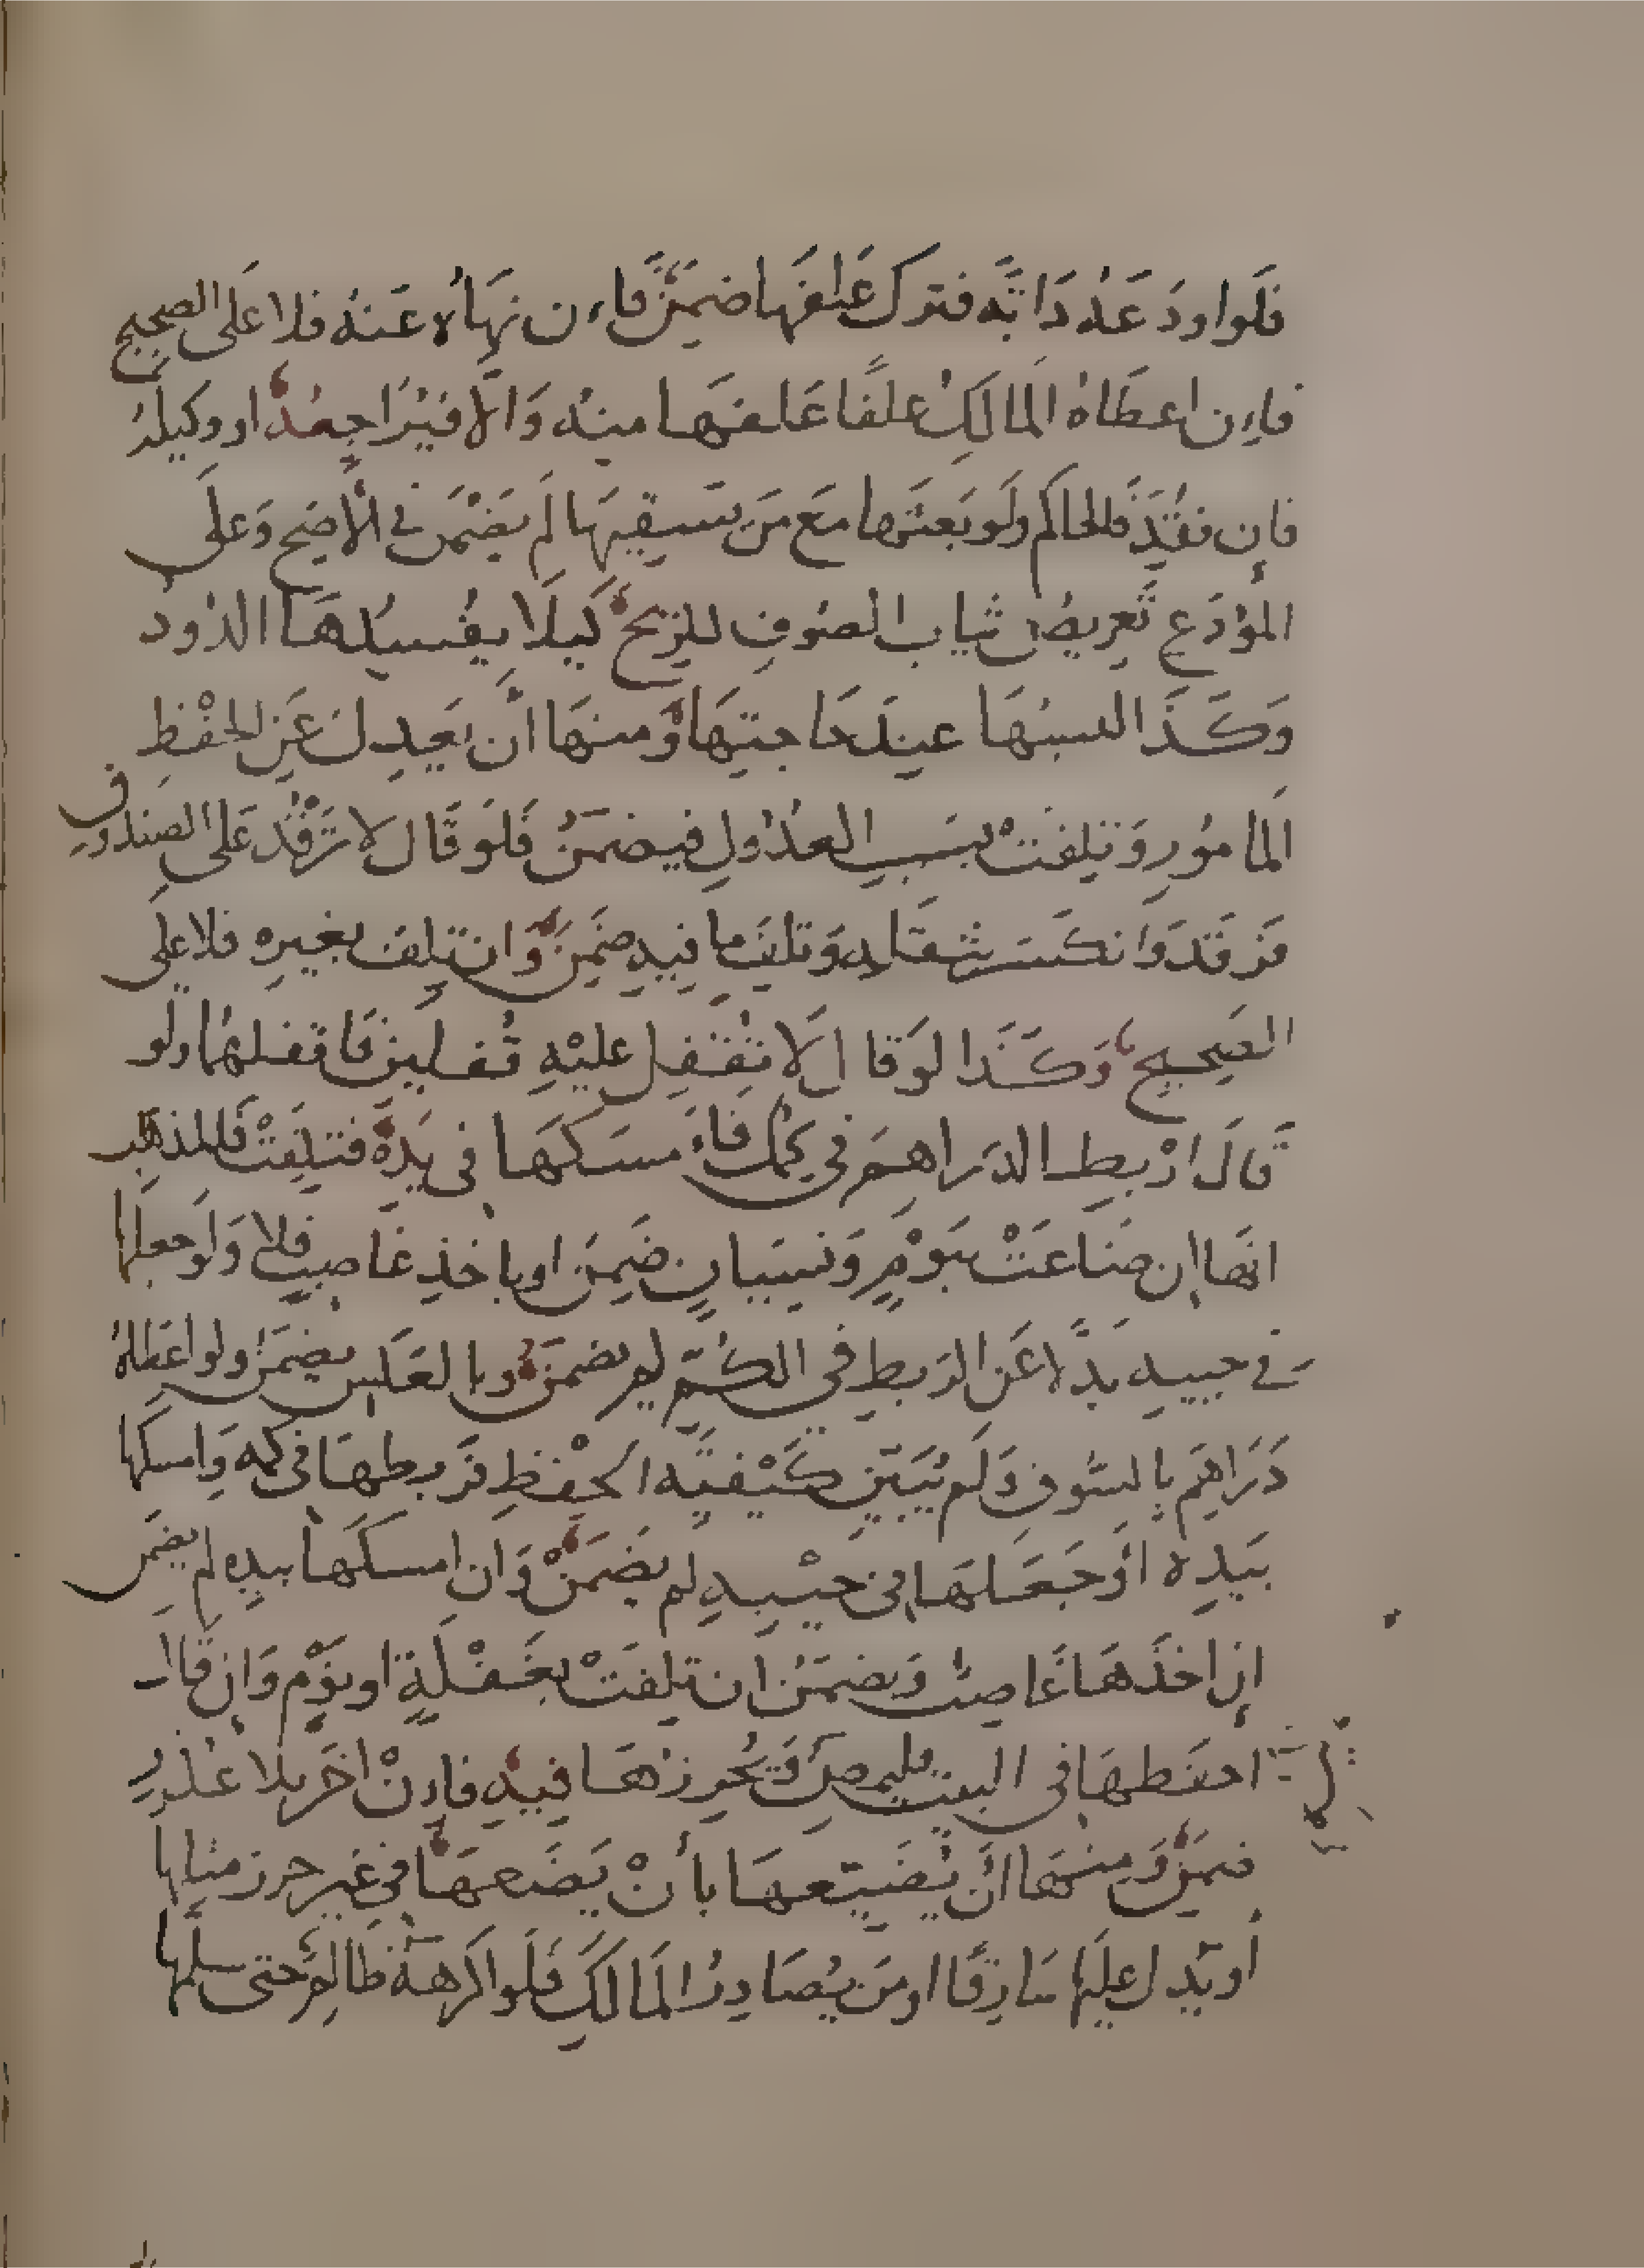 فلو اودعه دابة فترك علفها ضمن فان نهاه عنه فلا على الصحيح
فان اعطاه المالك علفا علفها منه والا فيراجعه او وكيله
فان فقد فالحاكم ولو بعثها مع من يسقيها لم يضمن في الاصح وعلى
المودع تعريض ثياب الصوف للريح كيلا يفسدها الدود
وكذا لبسها عند حاجتها ومنها ان يعدل عن الحفظ
المامور وتلفت بسبب العدول فيضمن فلو قال لا ترقد على الصندوق
فرقد وانكسر بثقله وتلف ما فيه ضمن وان تلف بغيره فلا على
الصحيح وكذا لو قال لا تقفل عليه قفلين فاقفلهما ولو
قال اربط الدراهم في كمك فامسكها في يده فتلفت فالمذهب
انها ان ضاعت بنوم ونسيان ضمن او باخذ غاصب فلا ولو جعلها
في جيبه بدلا عن الربط في الكم لم يضمن وبالعكس يضمن ولو اعطاه
دراهم بالسوق ولم يبين كيفية الحفظ فربطها في كمه وامسكها
بيده او جعلها في جيبه لم يضمن وان امسكها بيده لم يضمن
ان اخذها غاصب ويضمن ان تلفت بغفلة او نوم وان قال
احفظها في البيت فليمض ويحرزها فيه فان اخر بلا عذر
ضمن ومنها ان يضيعها بأن يضعها في غير حرز مثلها
أو يدل عليها سارقا او من يصادر المالك فلو اكرهه ظالم حتى سلمها